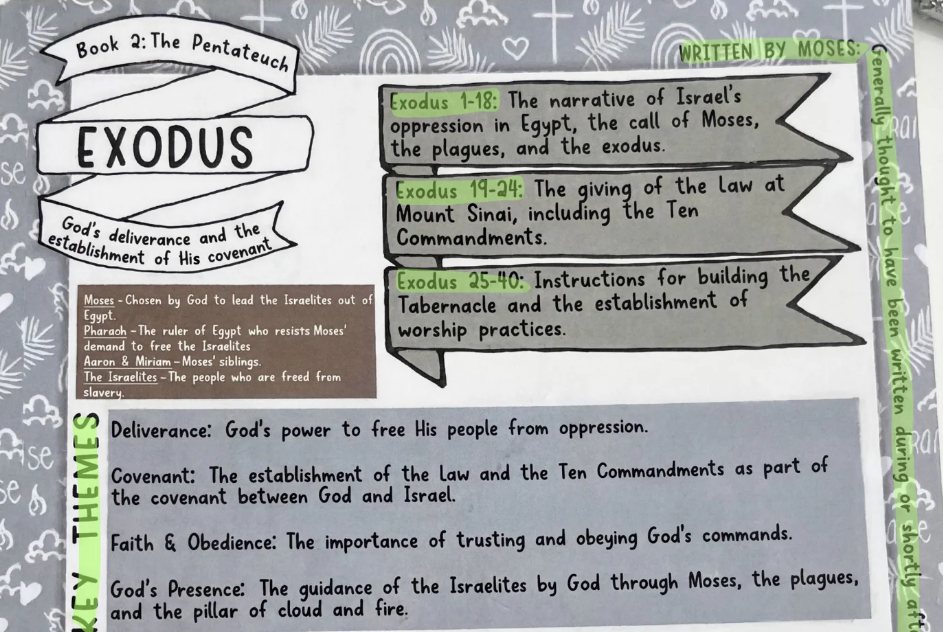 Book 2: The Pentateuch
EXODUS
God's deliverance and the
establishment of His covenant
WRITTEN BY MOSES:
Generally thought to have been written during or shortly
Exodus 1-18: The narrative of Israel's
oppression in Egypt, the call of Moses,
the plagues, and the exodus.
Exodus 19-24: The giving of the Law at
Mount Sinai, including the Ten
Commandments.
Exodus 25-40: Instructions for building the
Tabernacle and the establishment of
worship practices.
Moses - Chosen by God to lead the Israelites out of
Egypt.
Pharaoh - The ruler of Egypt who resists Moses'
demand to free the Israelites
Aaron & Miriam - Moses' siblings.
The Israelites - The people who are freed from
slavery.
KEY THEMES
Deliverance: God's power to free His people from oppression.
Covenant: The establishment of the Law and the Ten Commandments as part of
the covenant between God and Israel.
Faith & Obedience: The importance of trusting and obeying God's commands.
God's Presence: The guidance of the Israelites by God through Moses, the plagues,
and the pillar of cloud and fire.